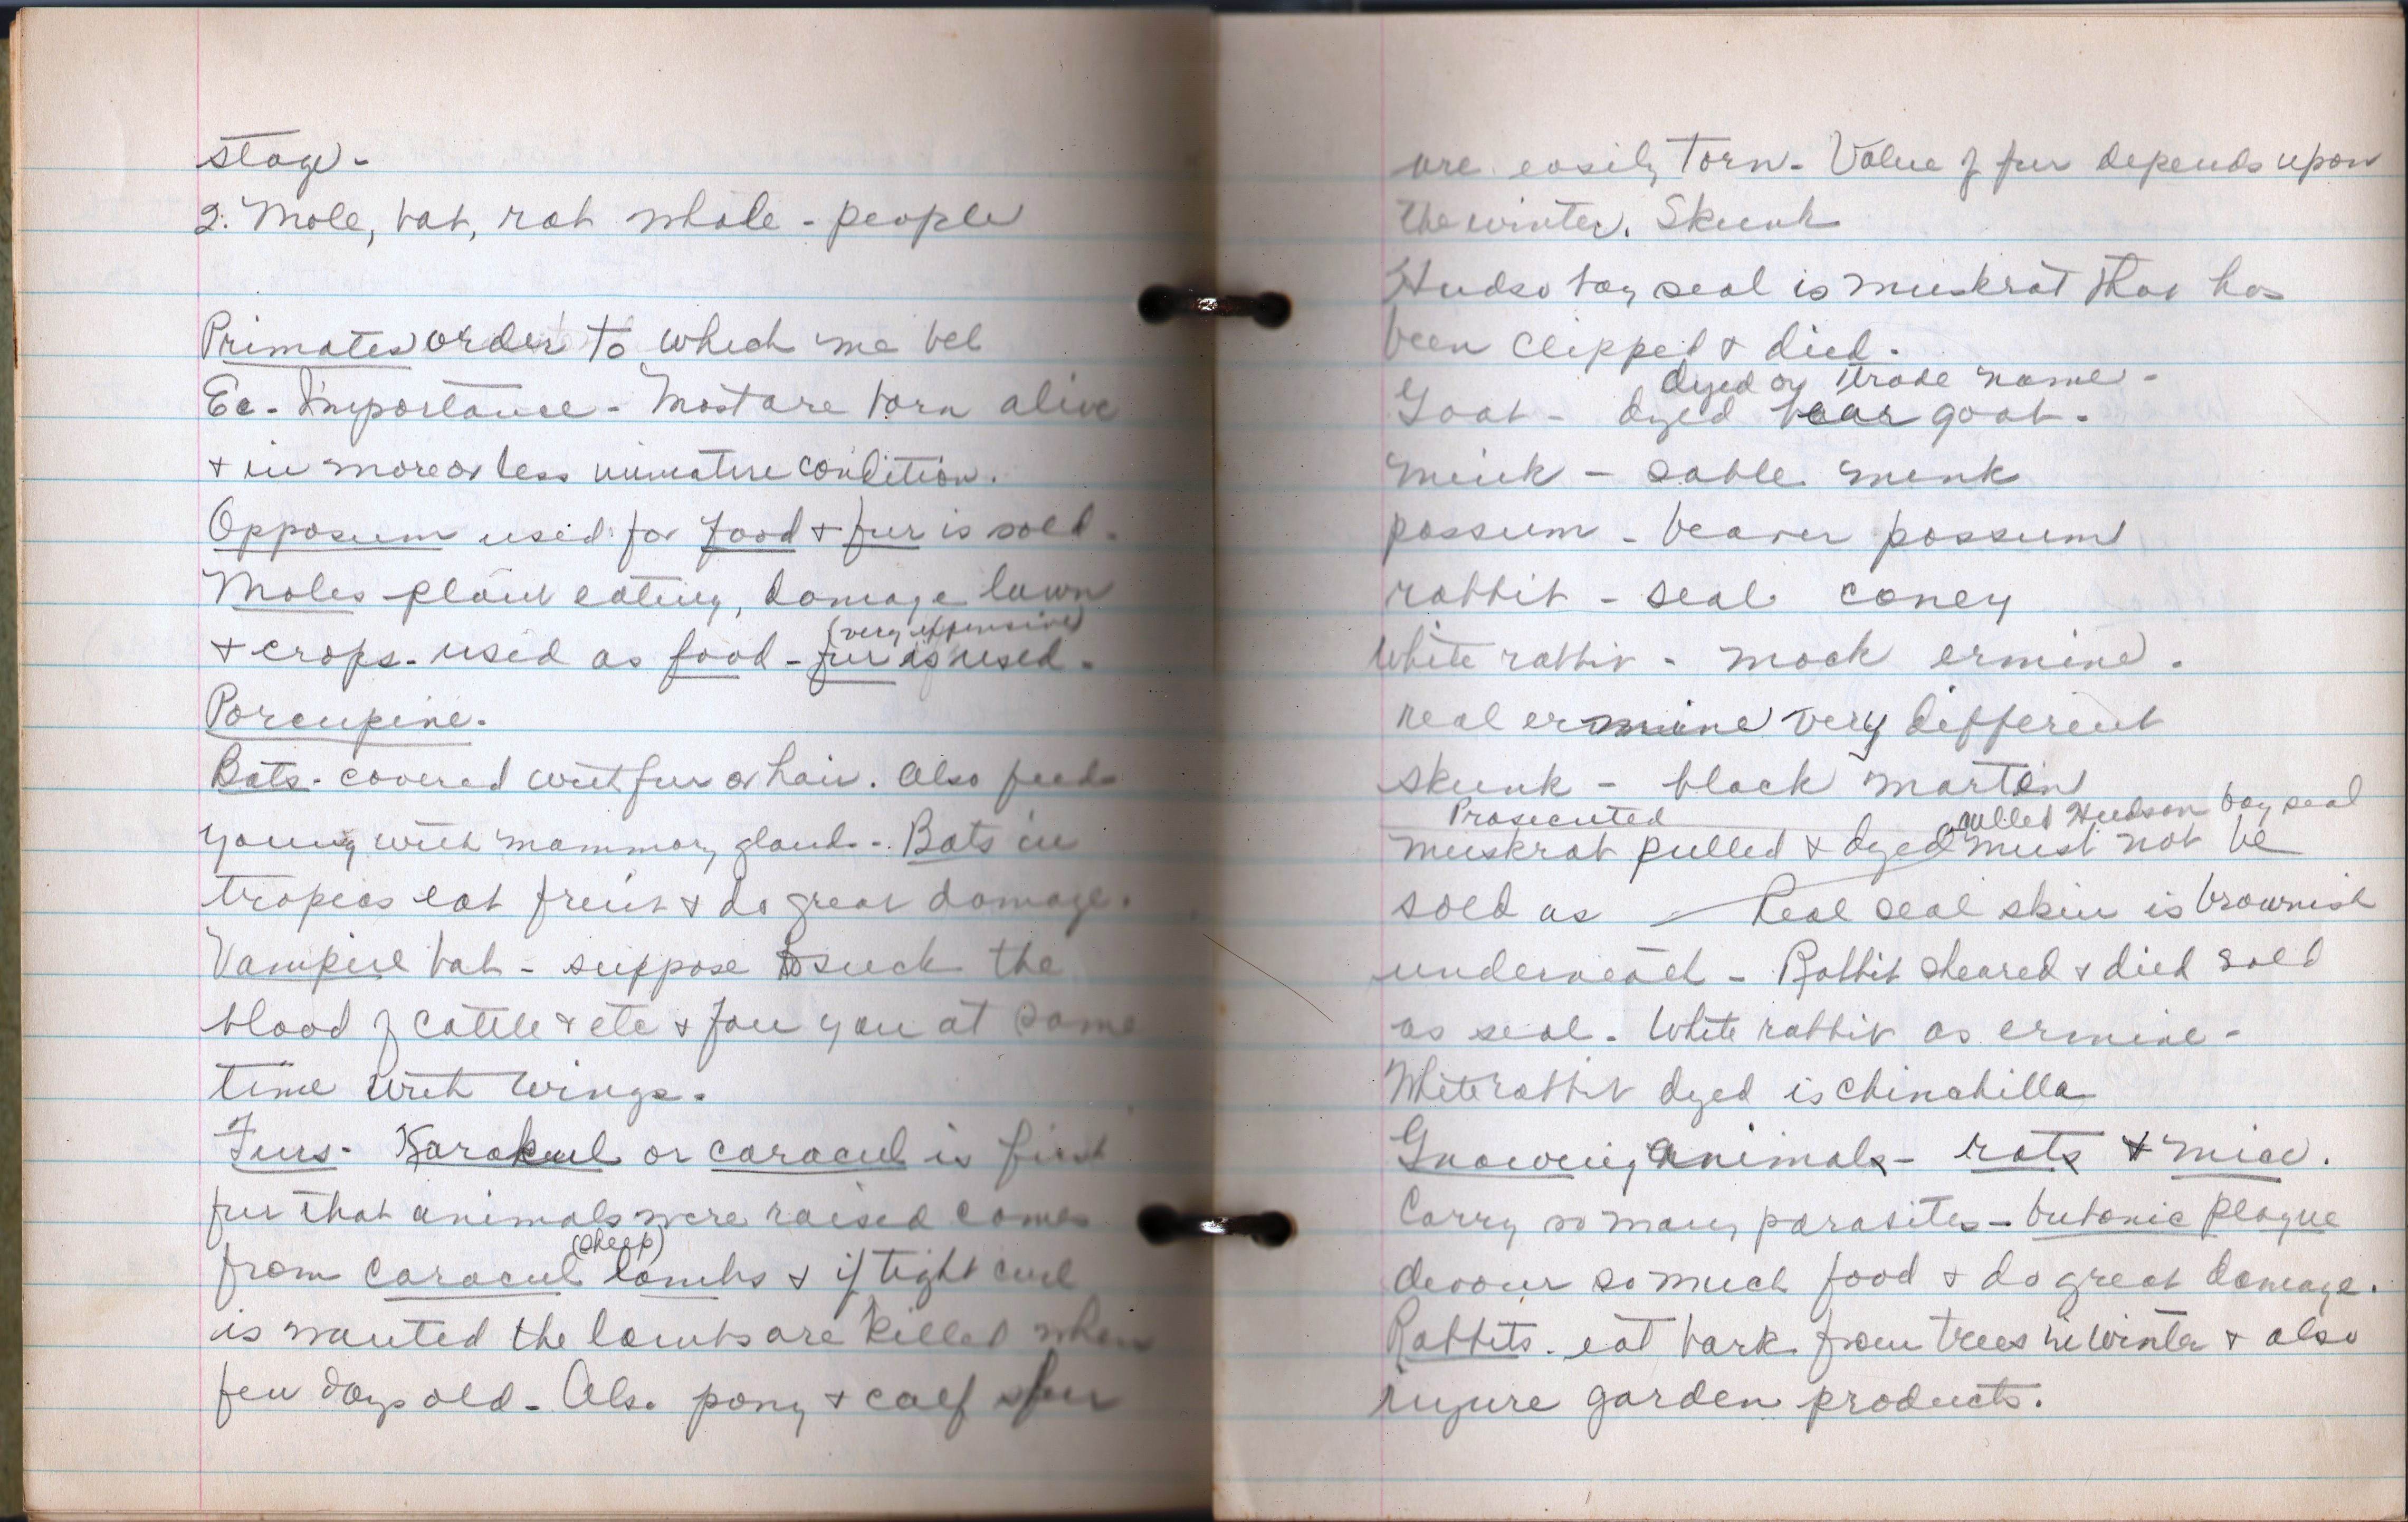 stage -
2. Mole, bat, rat whale - people
Primates order to which me bel
Ec - Importance - Most are born alive
+ in more or less immature condition.
Opposum used for Food + fur is sold.
Moles plant eating, damage lawn
(very expensive)
+ crops - used as food - fur is used.
Porcupine.
Bats - covered with fur or hair. Also feed
young with mammary glands - Bats in
tropics eat fruit + do great damage.
Vampire bat - suppose to suck the
blood of cattle + etc + fan you at same
time with wings.
Furs - Karakul or caracul is first
fur that animals were raised comes
(sheep)
from caracul lambs + if tight curl
is wanted the lambs are killed when
few days old - Also pony + calf fur
are easily torn - Value of fur depends upon
the winter. Skunk
Hudso bay seal is muskrat that has
been clipped + died.
dyed by trade name -
Goat - dyed bear goat.
mink - sable mink
possum - beaver possum
rabbit - seal coney
White rabbit - mock ermine.
real ermine very different
skunk - black marten
Prosecuted called Hudson bay seal
muskrat pulled + dyed must not be
sold as Real seal skin is brownish
underneath - Rabbit sheared + died sold
as seal. White rabbit as ermine -
White rabbit dyed is chinahilla
Gnawing animals - rats + mice.
Carry so many parasites - butonic plague
devour so much food + do great damage.
Rabbits - eat bark from trees in winter + also
injure garden products.